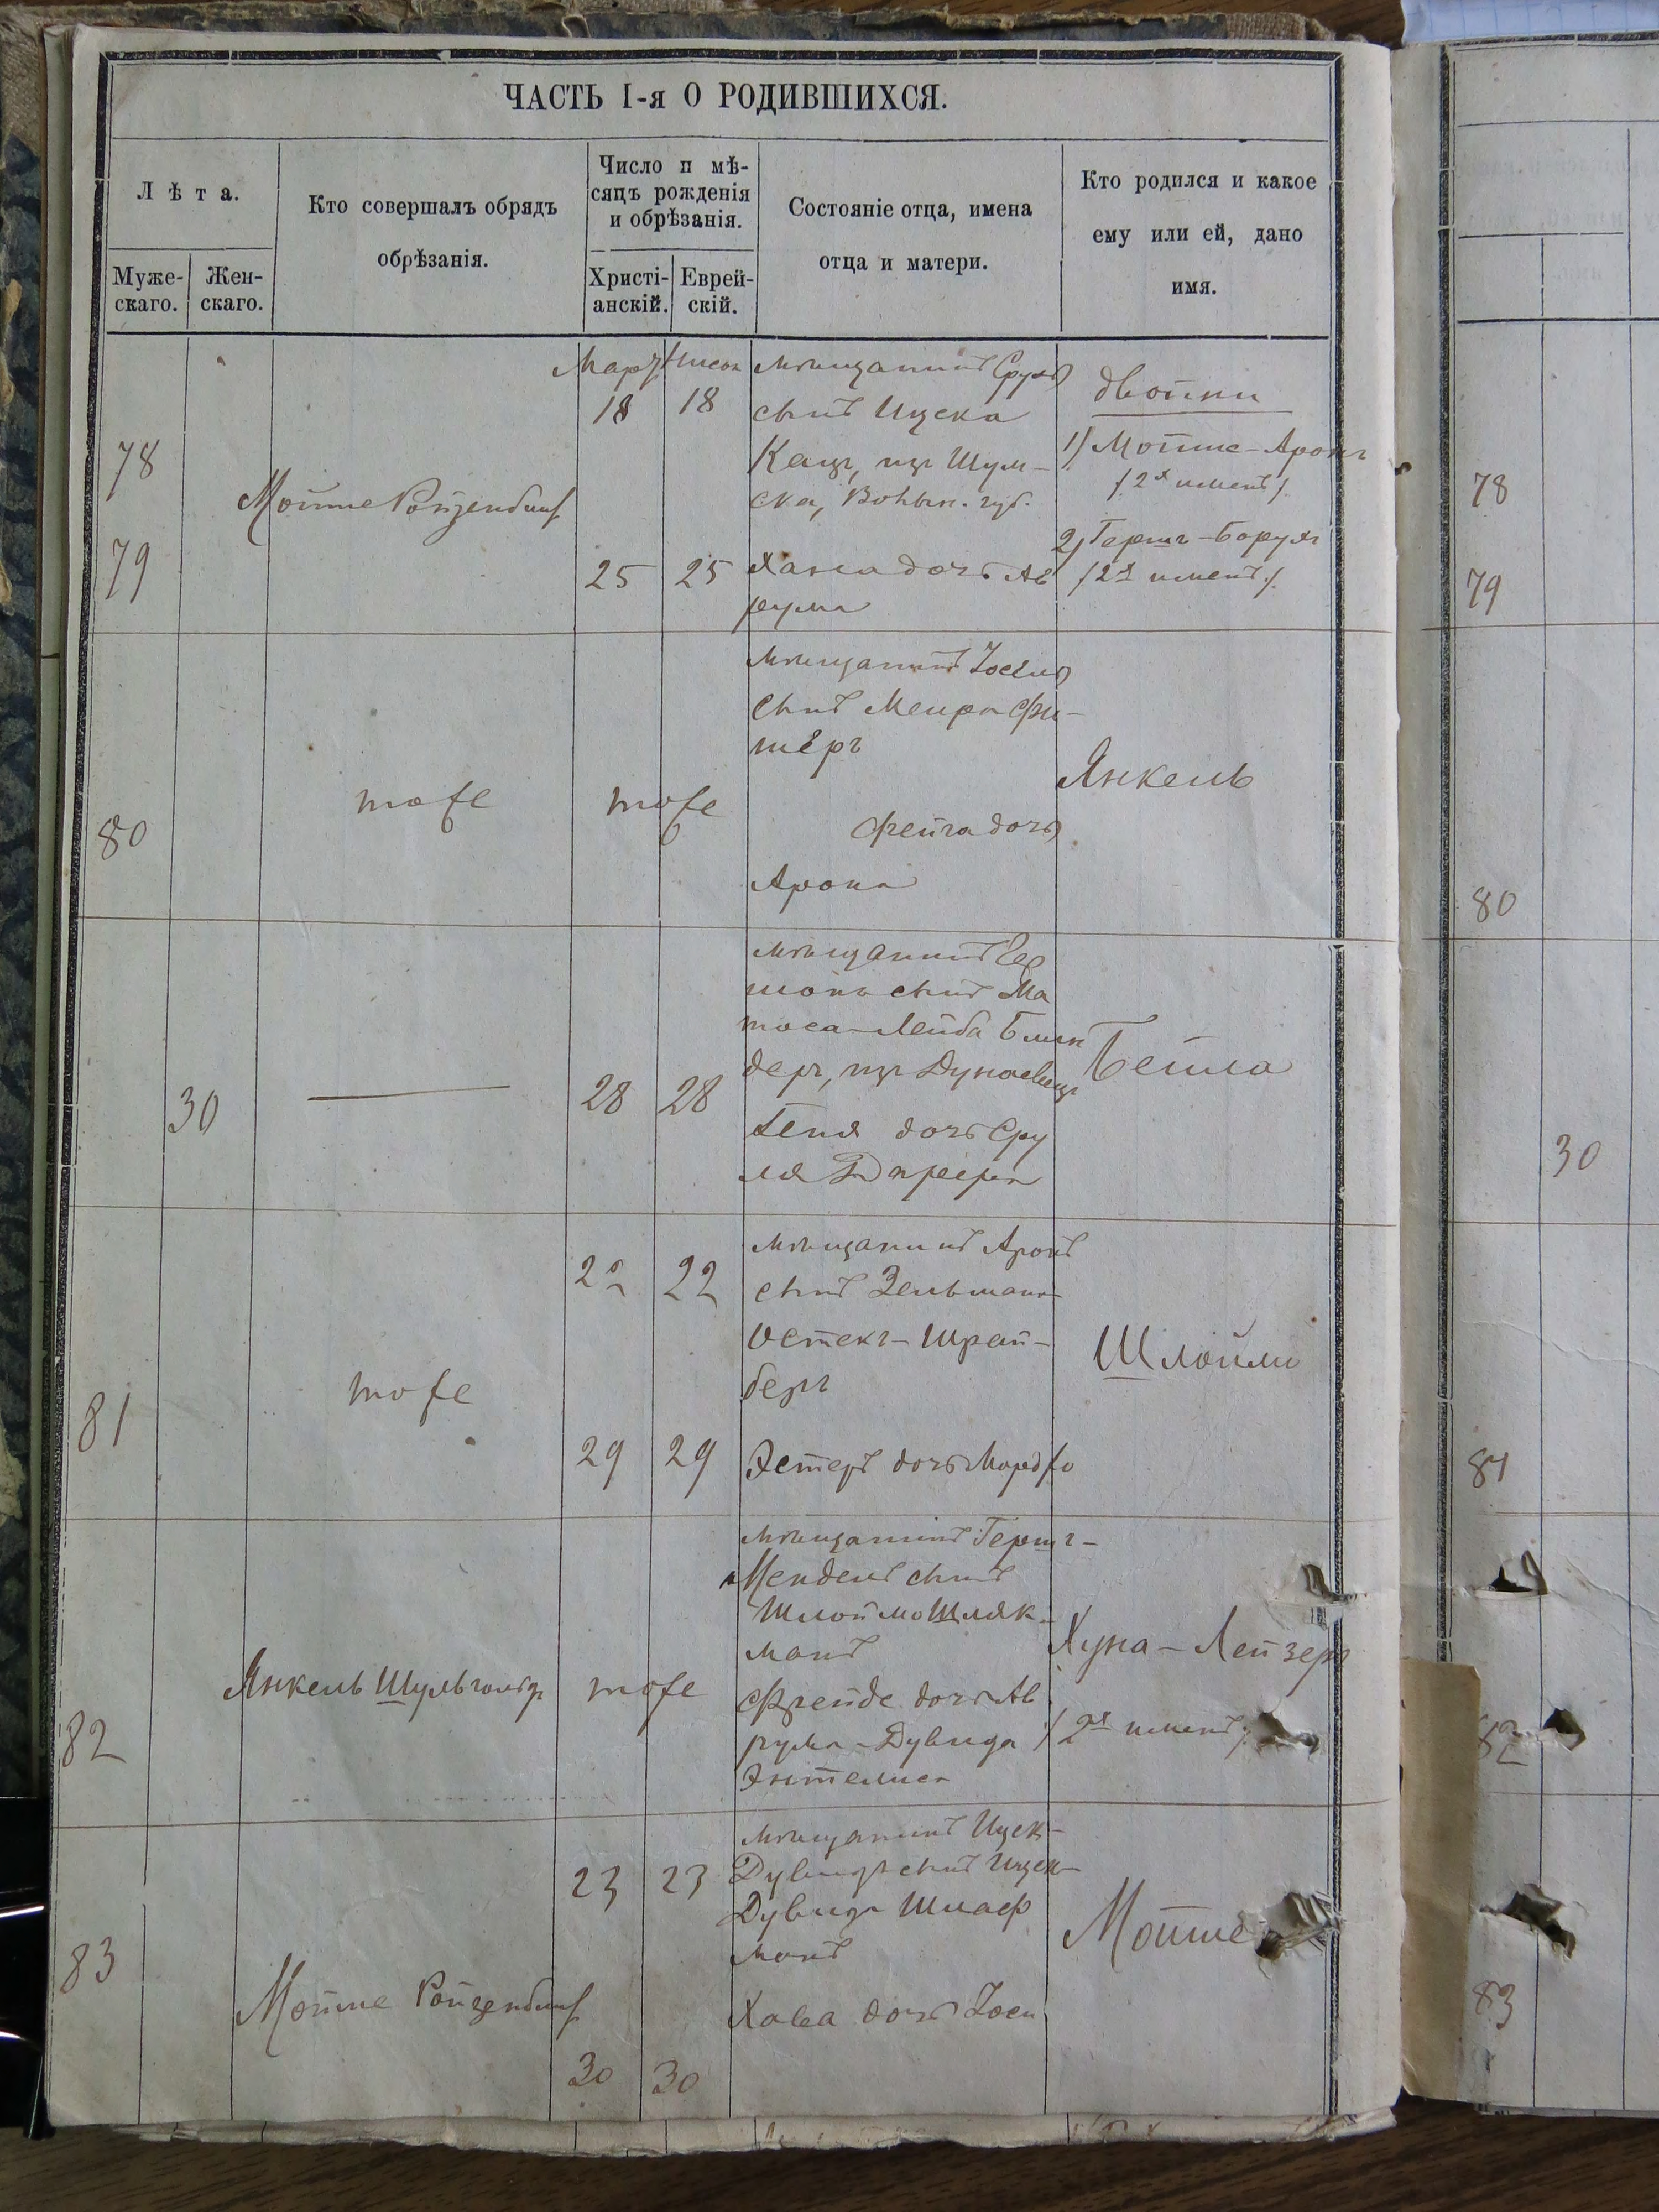 ЧАСТЬ I-я О РОДИВШИХСЯ.
Лѣта.
Муже-
скаго.
Жен-
скаго.
Кто совершалъ обрядъ
обрѣзанія.
Число и мѣ-
сяцъ рожденія
и обрѣзанія.
Христі-
анскій.
Еврей-
скій.
Состояніе отца, имена
отца и матери.
Кто родился и какое
ему или ей, дано
имя.
78
79
Мойше Ройзенблит
Март
18
18
25
25
мѣщанинъ Сруль
сынъ Ицека
Кац, из Шум-
ска, Волын. губ.
Хана дочь Ав
рума
двойни
1) Мойше-Арон
(2х именъ).
2) Герш-Борух
(2х именъ).
80
тоже
тоже
мѣщанинъ Iосель
сынъ Меира Фи-
шер
Фейга дочь
Арона
Янкель
30
28
28
мѣщанинъ
сынъ Ма
тоса-Лейба
дер, из Дунаевец
Геня дочь Сру
ля
Бейла
81
тоже
22
22
29
29
мѣщанинъ Аронъ
сынъ Зельмана
Остек-Шрай-
бер
Эстеръ дочь Мордко
Шлойма
82
Янкель
тоже
мѣщанинъ Герш-
Мендель сынъ
Шлоймо Шляк-
манъ
Фрейде дочь Ав
рума-Дувида
Хуна-Лейзер
(2х именъ).
83
Мойше Ройзенблит
23
23
30
30
мѣщанинъ Ицек-
Дувидъ сынъ Ицек-
Дувида Шлаф
манъ
Хава дочь Iоси
Мойше
78
79
80
30
81
82
83